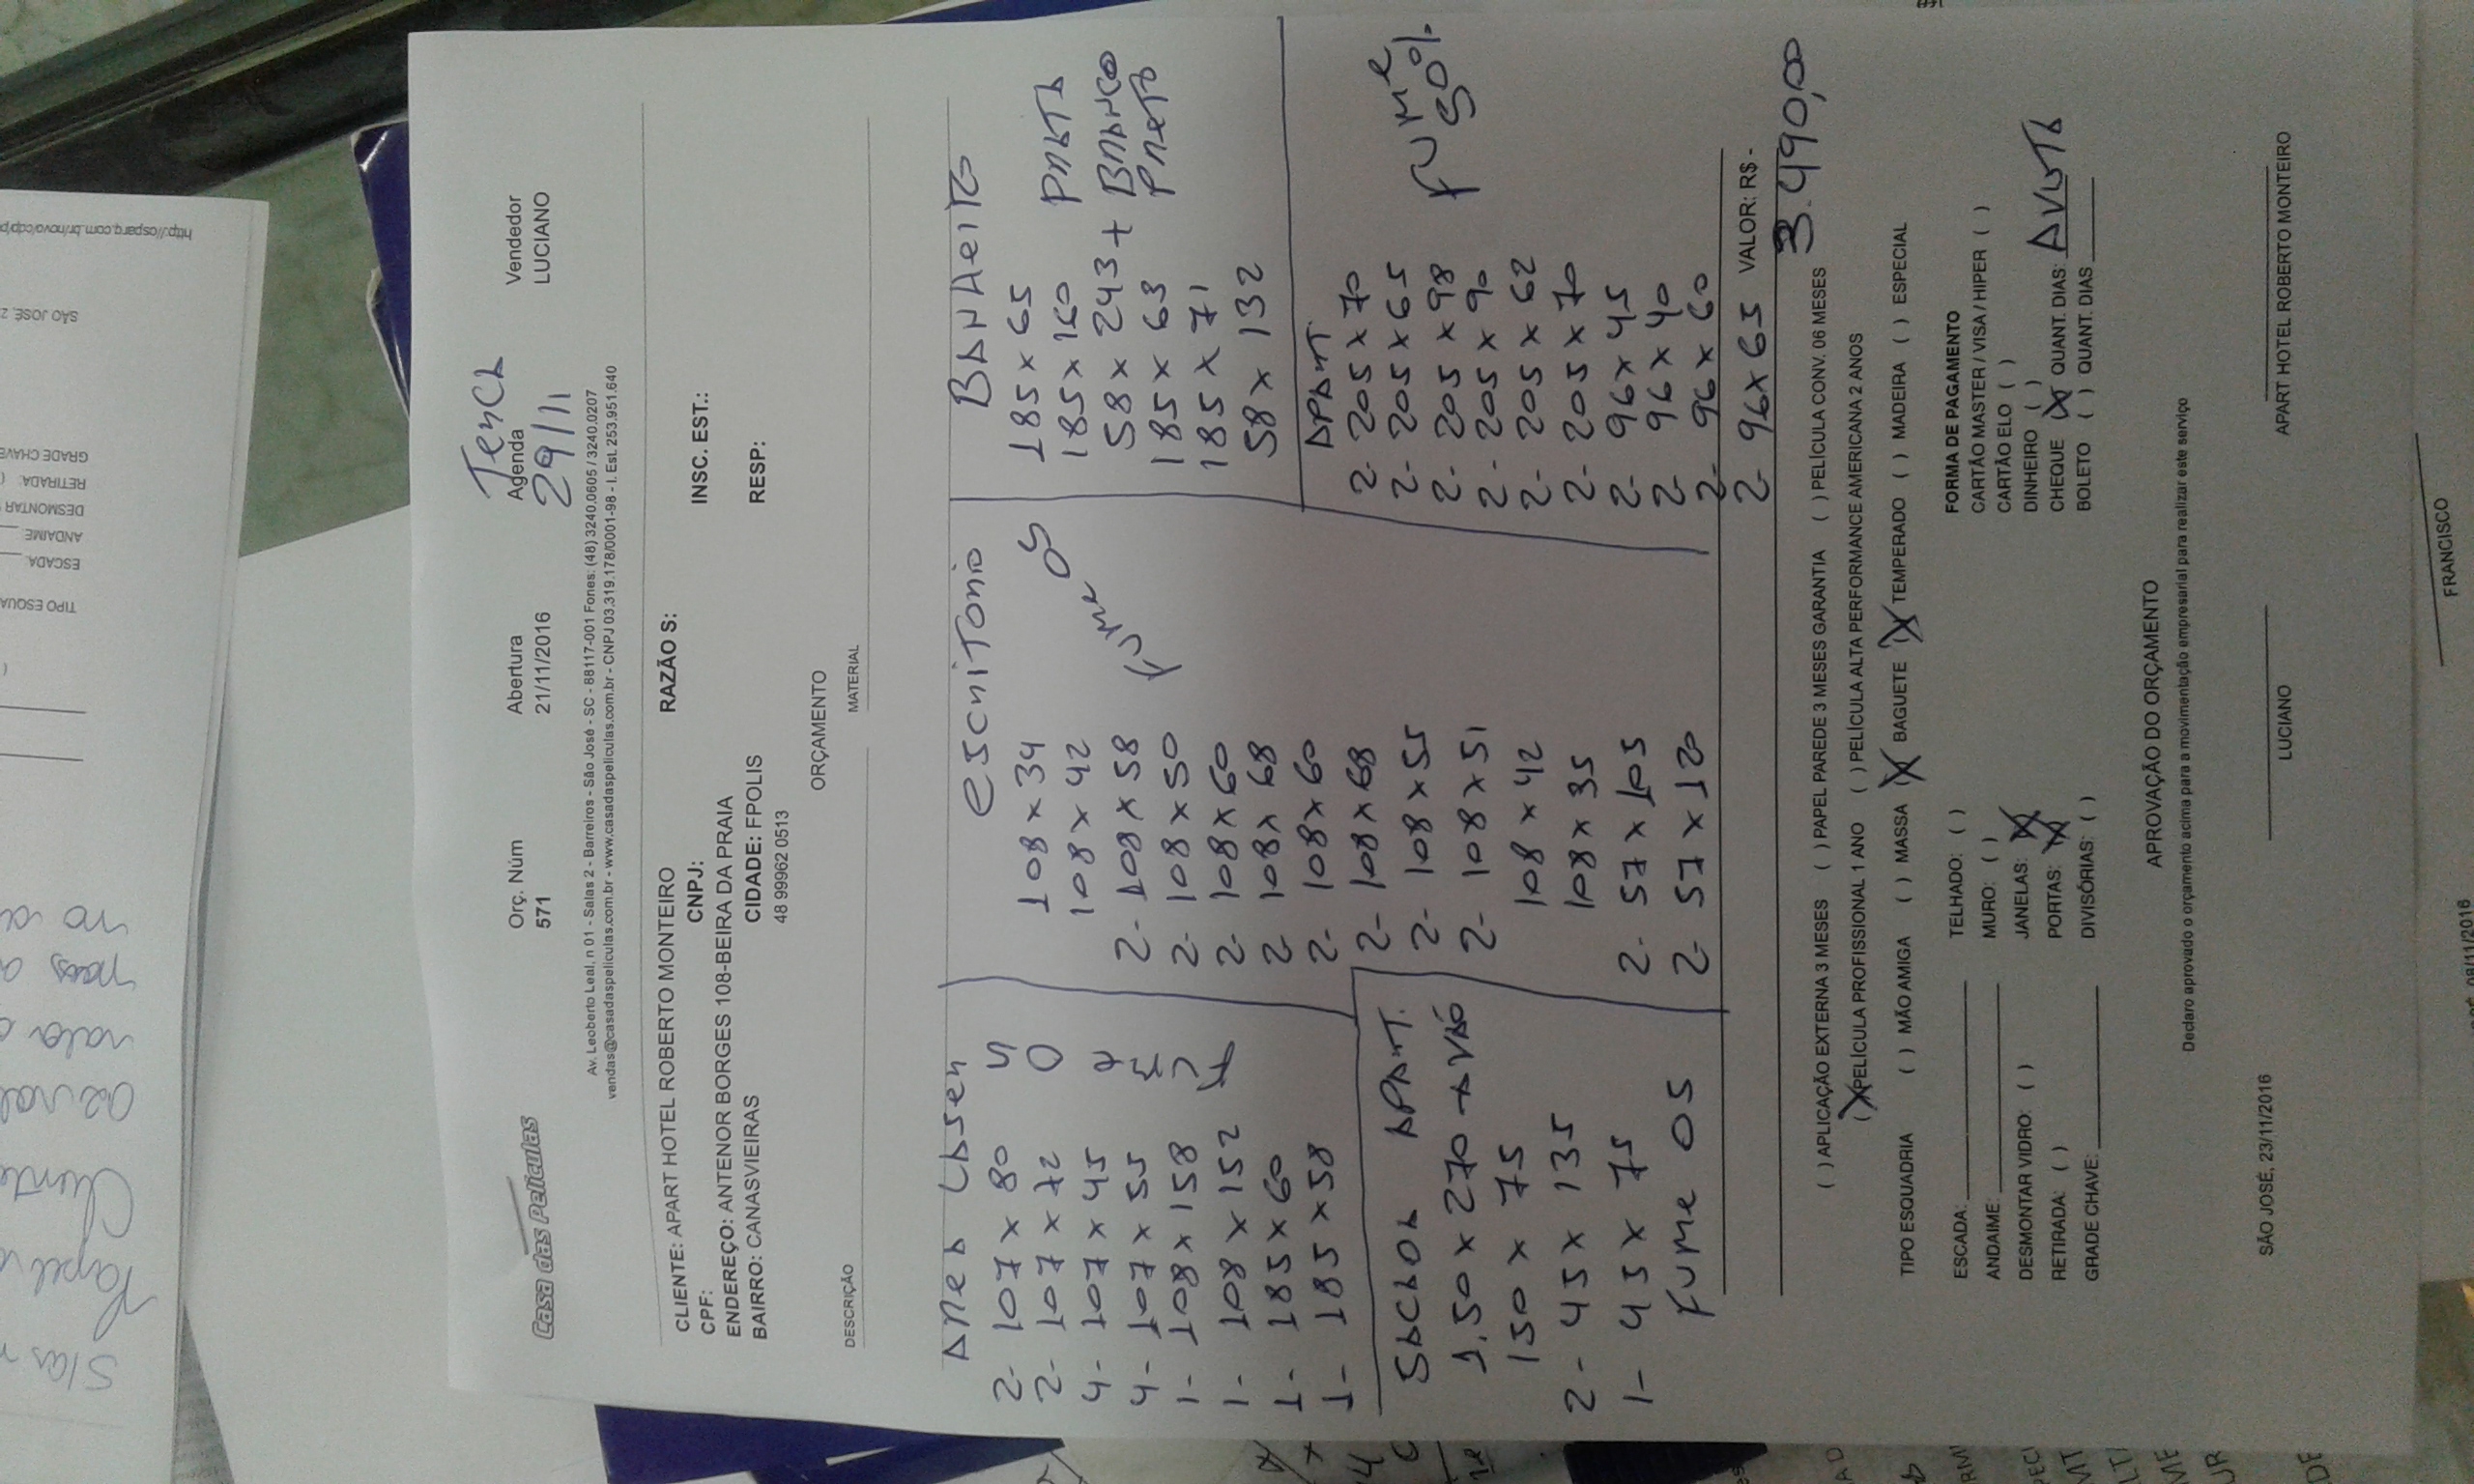 Casa das Películas
Orç. Núm
571
Abertura
21/11/2016
Terça
Agenda
29/11
Vendedor
LUCIANO
Av. Leoberto Leal, n 01 - Salas 2 - Barreiros - São José - SC - 88117-001 Fones: (48) 3240.0605 / 3240.0207
vendas@casadaspeliculas.com.br - www.casadaspeliculas.com.br - CNPJ 03.319.178/0001-98 - I. Est. 253.951.640
CLIENTE: APART HOTEL ROBERTO MONTEIRO RAZÃO S:
CPF: CNPJ: INSC. EST.:
ENDEREÇO: ANTENOR BORGES 108-BEIRA DA PRAIA
BAIRRO: CANASVIEIRAS CIDADE: FPOLIS RESP:
48 99962 0513
ORÇAMENTO
DESCRIÇÃO MATERIAL
AREA LASER
2- 107 x 80
2- 107 x 72
4- 107 x 45
4- 107 x 55
1- 108 x 158
1- 108 x 152
1- 185 x 60
1- 185 x 58
SACADA APART.
1.50 x 270 → VÃO
150 x 75
2- 45 x 135
1- 45 x 75
FUME 05
ESCRITORIO
108 x 34
108 x 42
2- 108 x 58
2- 108 x 50
2- 108 x 60
2- 108 x 68
2- 108 x 60
2- 108 x 68
2- 108 x 55
2- 108 x 51
108 x 42
108 x 35
2- 57 x 105
2- 57 x 120
FUME 05
BANHEIRO
185 x 65
185 x 160
58 x 243 +
185 x 63
185 x 71
58 x 132
PRATA
BRANCO
PRETO
APART.
2- 205 x 70
2- 205 x 65
2- 205 x 98
2- 205 x 90
2- 205 x 62
2- 205 x 70
2- 96 x 45
2- 96 x 40
2- 96 x 60
2- 96 x 65
FUME
50%
VALOR: R$ -
3.490,00
( ) APLICAÇÃO EXTERNA 3 MESES ( ) PAPEL PAREDE 3 MESES GARANTIA ( ) PELÍCULA CONV. 06 MESES
(X) PELÍCULA PROFISSIONAL 1 ANO ( ) PELÍCULA ALTA PERFORMANCE AMERICANA 2 ANOS
TIPO ESQUADRIA ( ) MÃO AMIGA ( ) MASSA (X) BAGUETE (X) TEMPERADO ( ) MADEIRA ( ) ESPECIAL
ESCADA:
ANDAIME:
DESMONTAR VIDRO: ( )
RETIRADA: ( )
GRADE CHAVE:
TELHADO: ( )
MURO: ( )
JANELAS: (X)
PORTAS: (X)
DIVISÓRIAS: ( )
FORMA DE PAGAMENTO
CARTÃO MASTER / VISA / HIPER ( )
CARTÃO ELO ( )
DINHEIRO ( )
CHEQUE (X) QUANT. DIAS: AVISTA
BOLETO ( ) QUANT. DIAS
APROVAÇÃO DO ORÇAMENTO
Declaro aprovado o orçamento acima para a movimentação empresarial para realizar este serviço
SÃO JOSÉ, 23/11/2016
LUCIANO
APART HOTEL ROBERTO MONTEIRO
FRANCISCO
08/11/2016
SÃO JOSÉ, 2
GRADE CHAVE
RETIRADA: (
DESMONTAR
ANDAIME:
ESCADA:
TIPO ESQUA